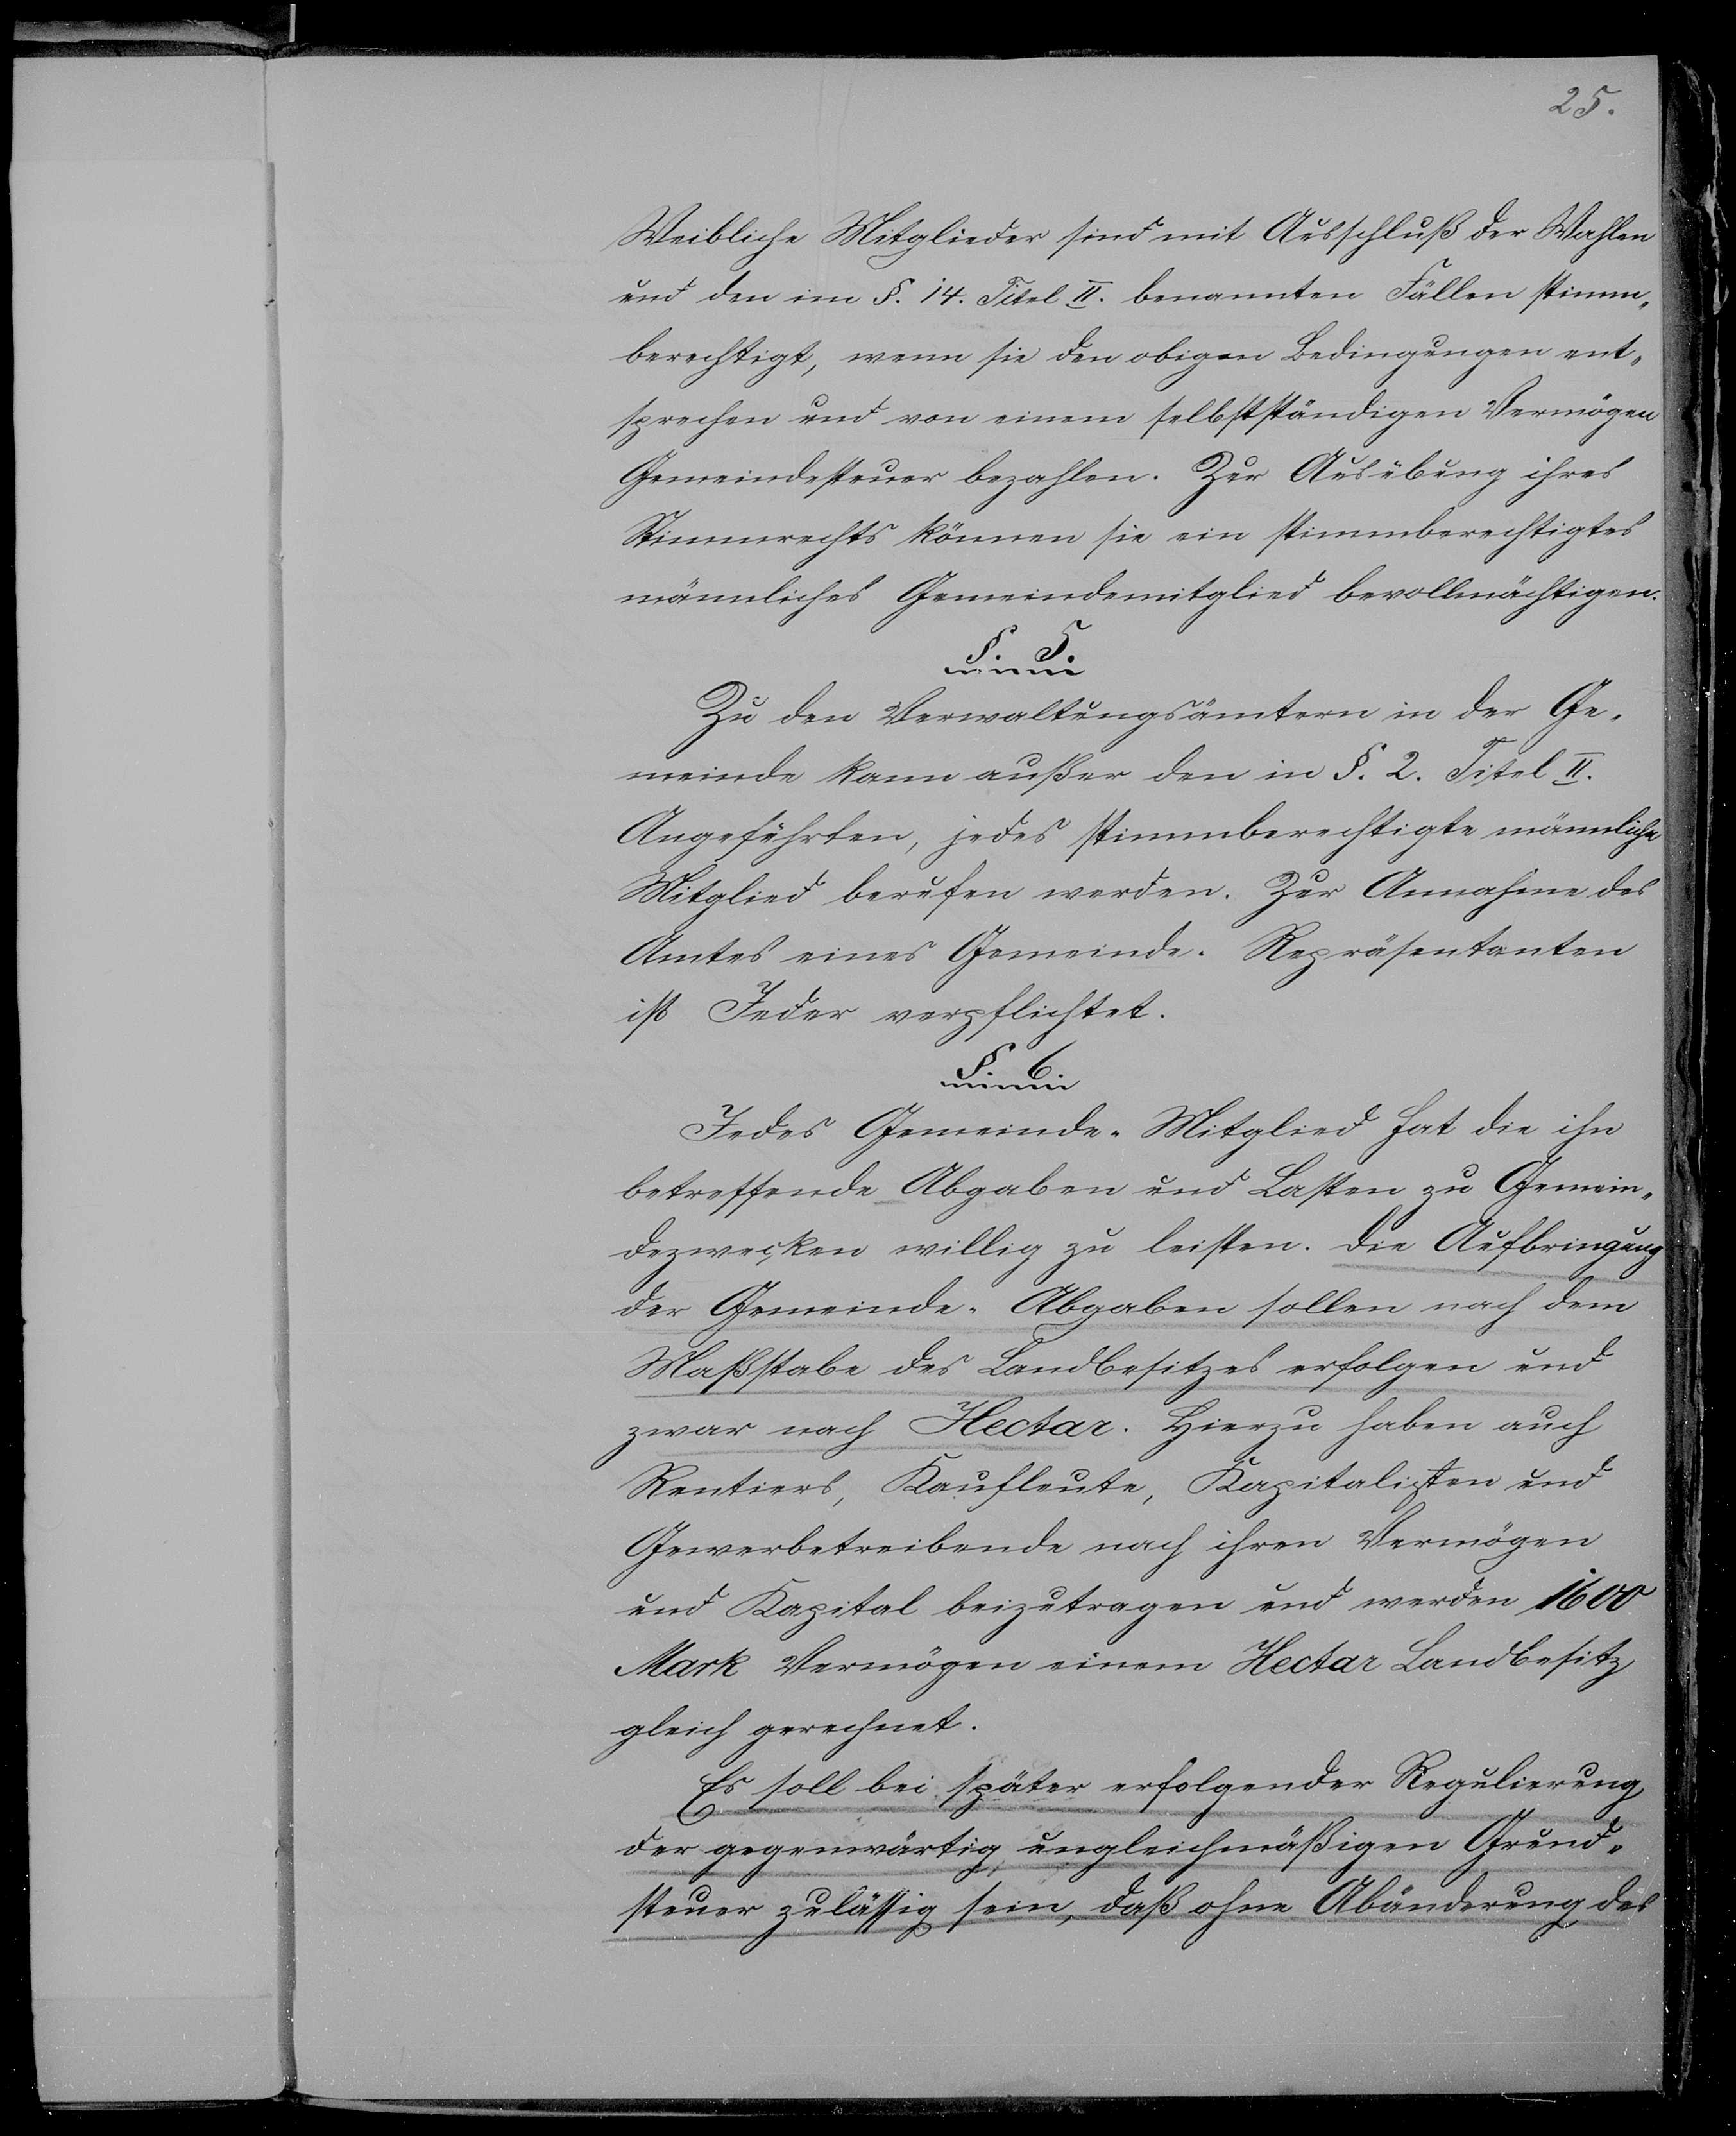 25.
Weibliche Mitglieder sind mit Ausschluß der Wahlen
und den im §. 14. Titel II. benannten Fällen stimm„
berechtigt, wenn sie den obigen Bedingungen ent„
sprechen und von einem selbstständigen Vermögen
Gemeindesteuer bezahlen. Zur Ausübung ihres
Stimmrechts können sie ein stimmberechtigtes
männliches Gemeindemitglied bevollmächtigen.
§. 5.
Zu den Verwaltungsämtern in der Ge„
meinde kann außer den in §. 2. Titel II.
Angeführten, jedes stimmberechtigte männliche
Mitglied berufen werden. Zur Annahme des
Amtes eines Gemeinde„ Repräsentanten
ist Jeder verpflichtet.
§. 6.
Jedes Gemeinde„ Mitglied hat die ihn
betreffende Abgaben und Lasten zu Gemein„
dezwecken willig zu leisten. Die Aufbringung
der Gemeinde„ Abgaben sollen nach dem
Maßstabe des Landbesitzes erfolgen und
zwar nach Hectar. Hierzu haben auch
Rentiers, Kaufleute, Kapitalisten und
Gewerbetreibende nach ihren Vermögen
und Kapital beizutragen und werden 1600
Mark Vermögen einem Hectar Landbesitz
gleich gerechnet.
Es soll bei später erfolgender Regulierung
der gegenwärtig ungleichmäßigen Grund„
steuer zulässig sein, daß ohne Abänderung des